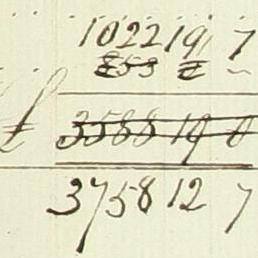 1022 19 7
£ 3588 19 0
3758 12 7